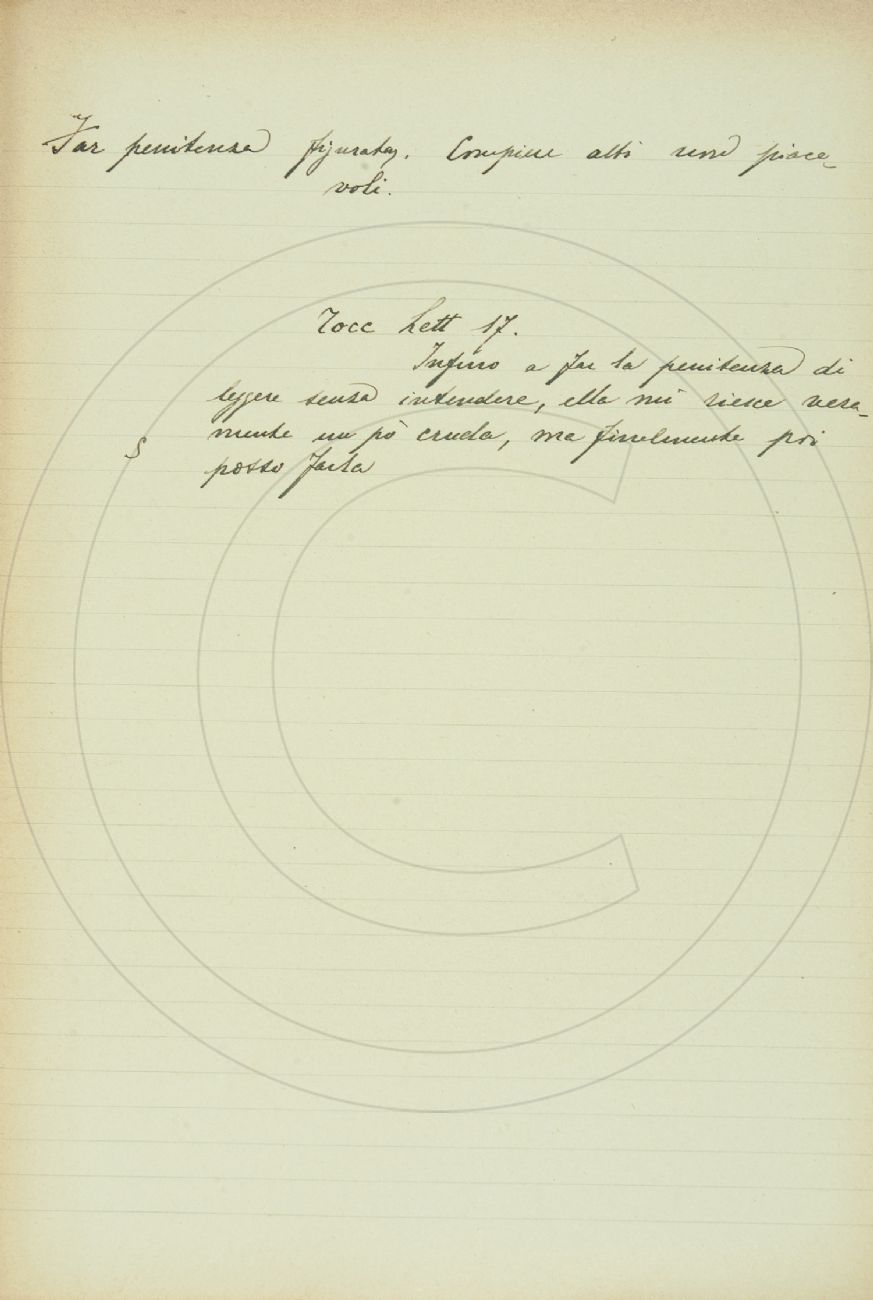 Far penitenza figuratas. Compiere atti non piace-
voli.
Tocc Lett 17.
Infino a far la penitenza di
leggere senza intendere, ella mi riesce vera-
mente un pò cruda, ma finalmente poi
S
posso farla